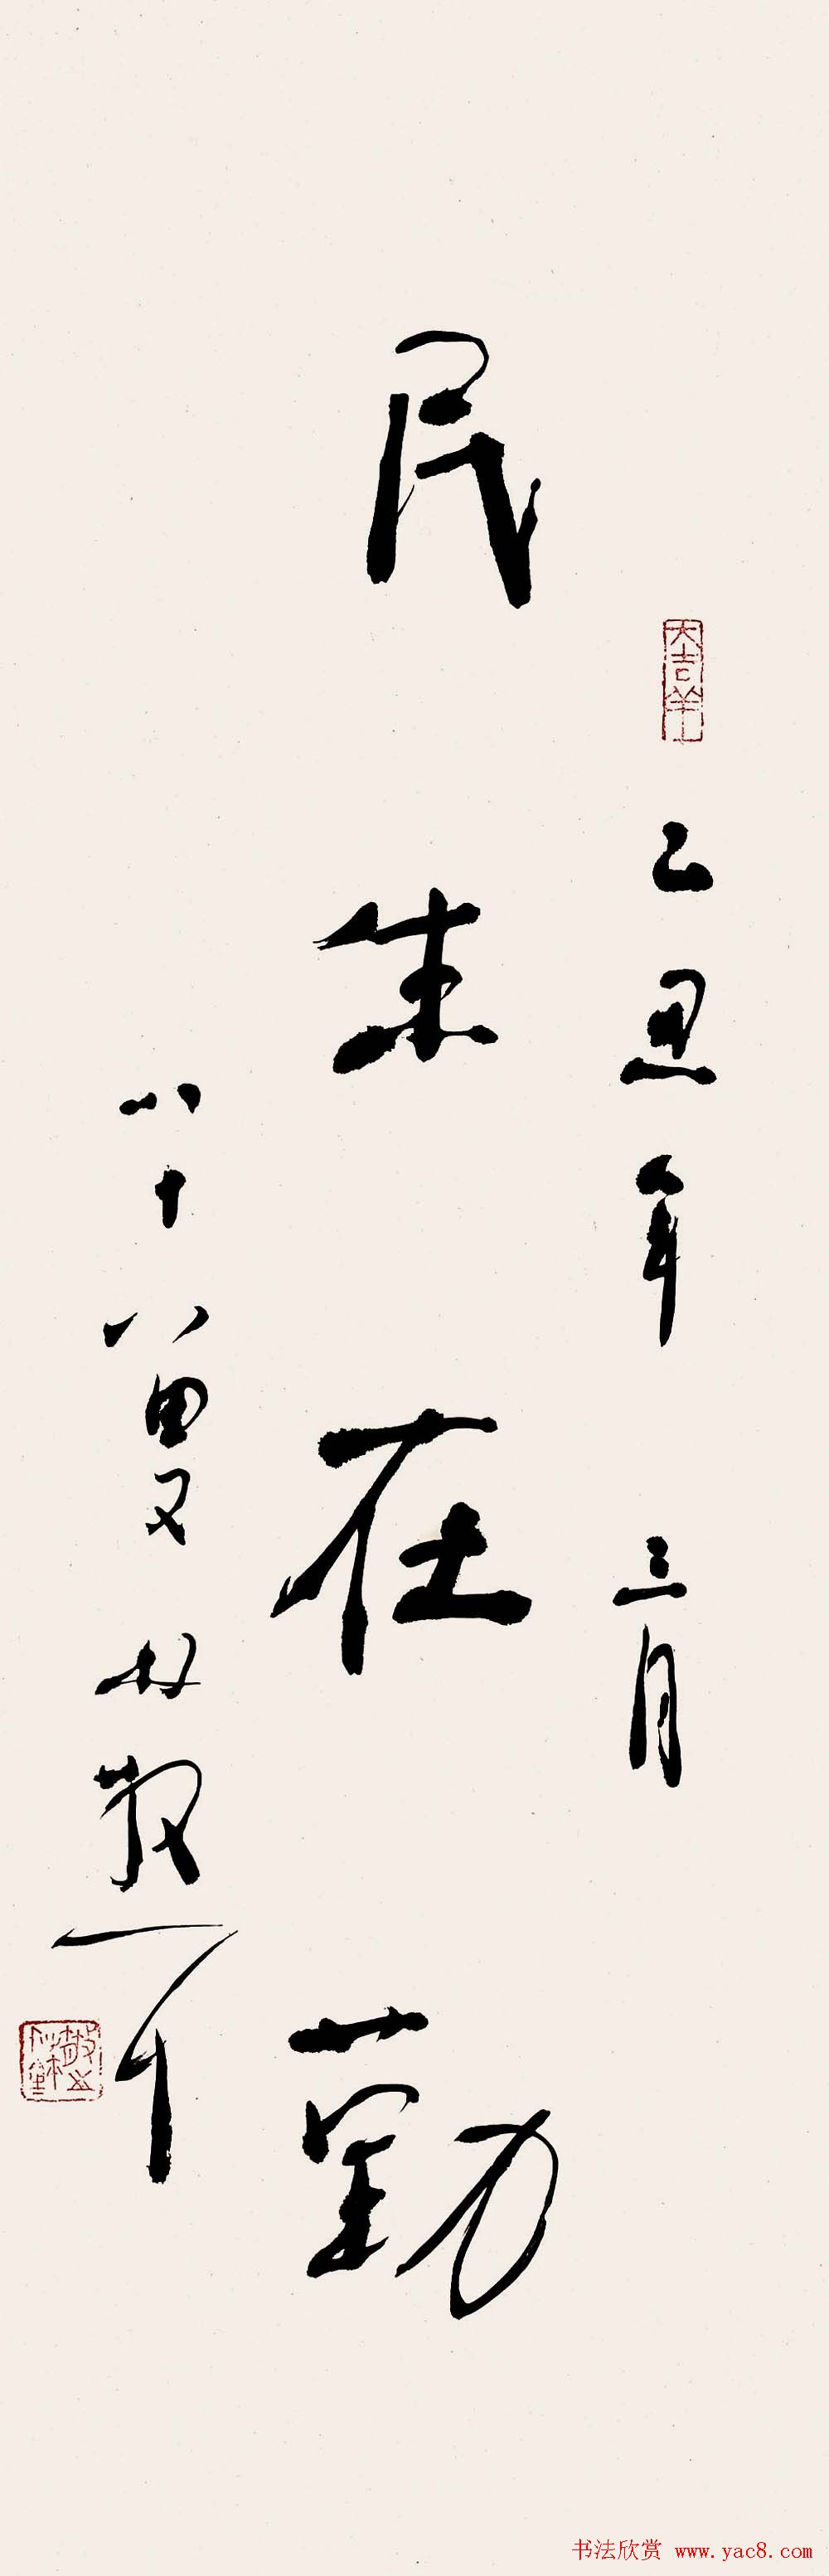 大吉羊
乙丑年三月
民生在勤
八十八叟林散耳
书法欣赏 www.yac8.com